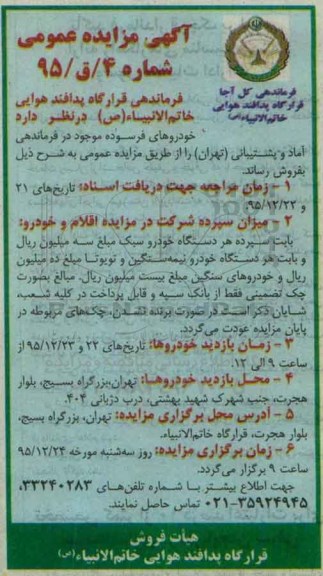 آگهی مزایده عمومی
شماره ۴/ق/۹۵
فرماندهی کل آجا
قرارگاه پدافند هوایی
خاتم‌الانبیاء(ص)
فرماندهی قرارگاه پدافند هوایی
خاتم‌الانبیاء(ص) درنظر دارد
خودروهای فرسوده موجود در فرماندهی
آماد و پشتیبانی (تهران) را از طریق مزایده عمومی به شرح ذیل
بفروش رساند.
۱ - زمان مراجعه جهت دریافت اسناد: تاریخ‌های ۲۱
و ۹۵/۱۲/۲۲.
۲ - میزان سپرده شرکت در مزایده اقلام و خودرو:
بابت سپرده هر دستگاه خودرو سبک مبلغ سه میلیون ریال
و بابت هر دستگاه خودرو نیمه‌سنگین و تویوتا مبلغ ده میلیون
ریال و خودروهای سنگین مبلغ بیست میلیون ریال. مبالغ بصورت
چک تضمینی فقط از بانک سپه و قابل پرداخت در کلیه شعب،
شایان ذکر است در صورت برنده نشدن، چک‌های مربوطه در
پایان مزایده عودت می‌گردد.
۳ - زمان بازدید خودروها: تاریخ‌های ۲۲ و ۹۵/۱۲/۲۳ از
ساعت ۹ الی ۱۲.
۴ - محل بازدید خودروها: تهران، بزرگراه بسیج، بلوار
هجرت، جنب شهرک شهید بهشتی، درب دژبانی ۴۰۴.
۵ - آدرس محل برگزاری مزایده: تهران، بزرگراه بسیج،
بلوار هجرت، قرارگاه خاتم‌الانبیاء.
۶ - زمان برگزاری مزایده: روز سه‌شنبه مورخه ۹۵/۱۲/۲۴
ساعت ۹ برگزار می‌گردد.
جهت اطلاع بیشتر با شماره تلفن‌های ۳۳۲۴۰۲۸۳،
۳۵۹۲۴۹۴۵-۰۲۱ تماس حاصل نمایند.
هیأت فروش
قرارگاه پدافند هوایی خاتم‌الانبیاء(ص)